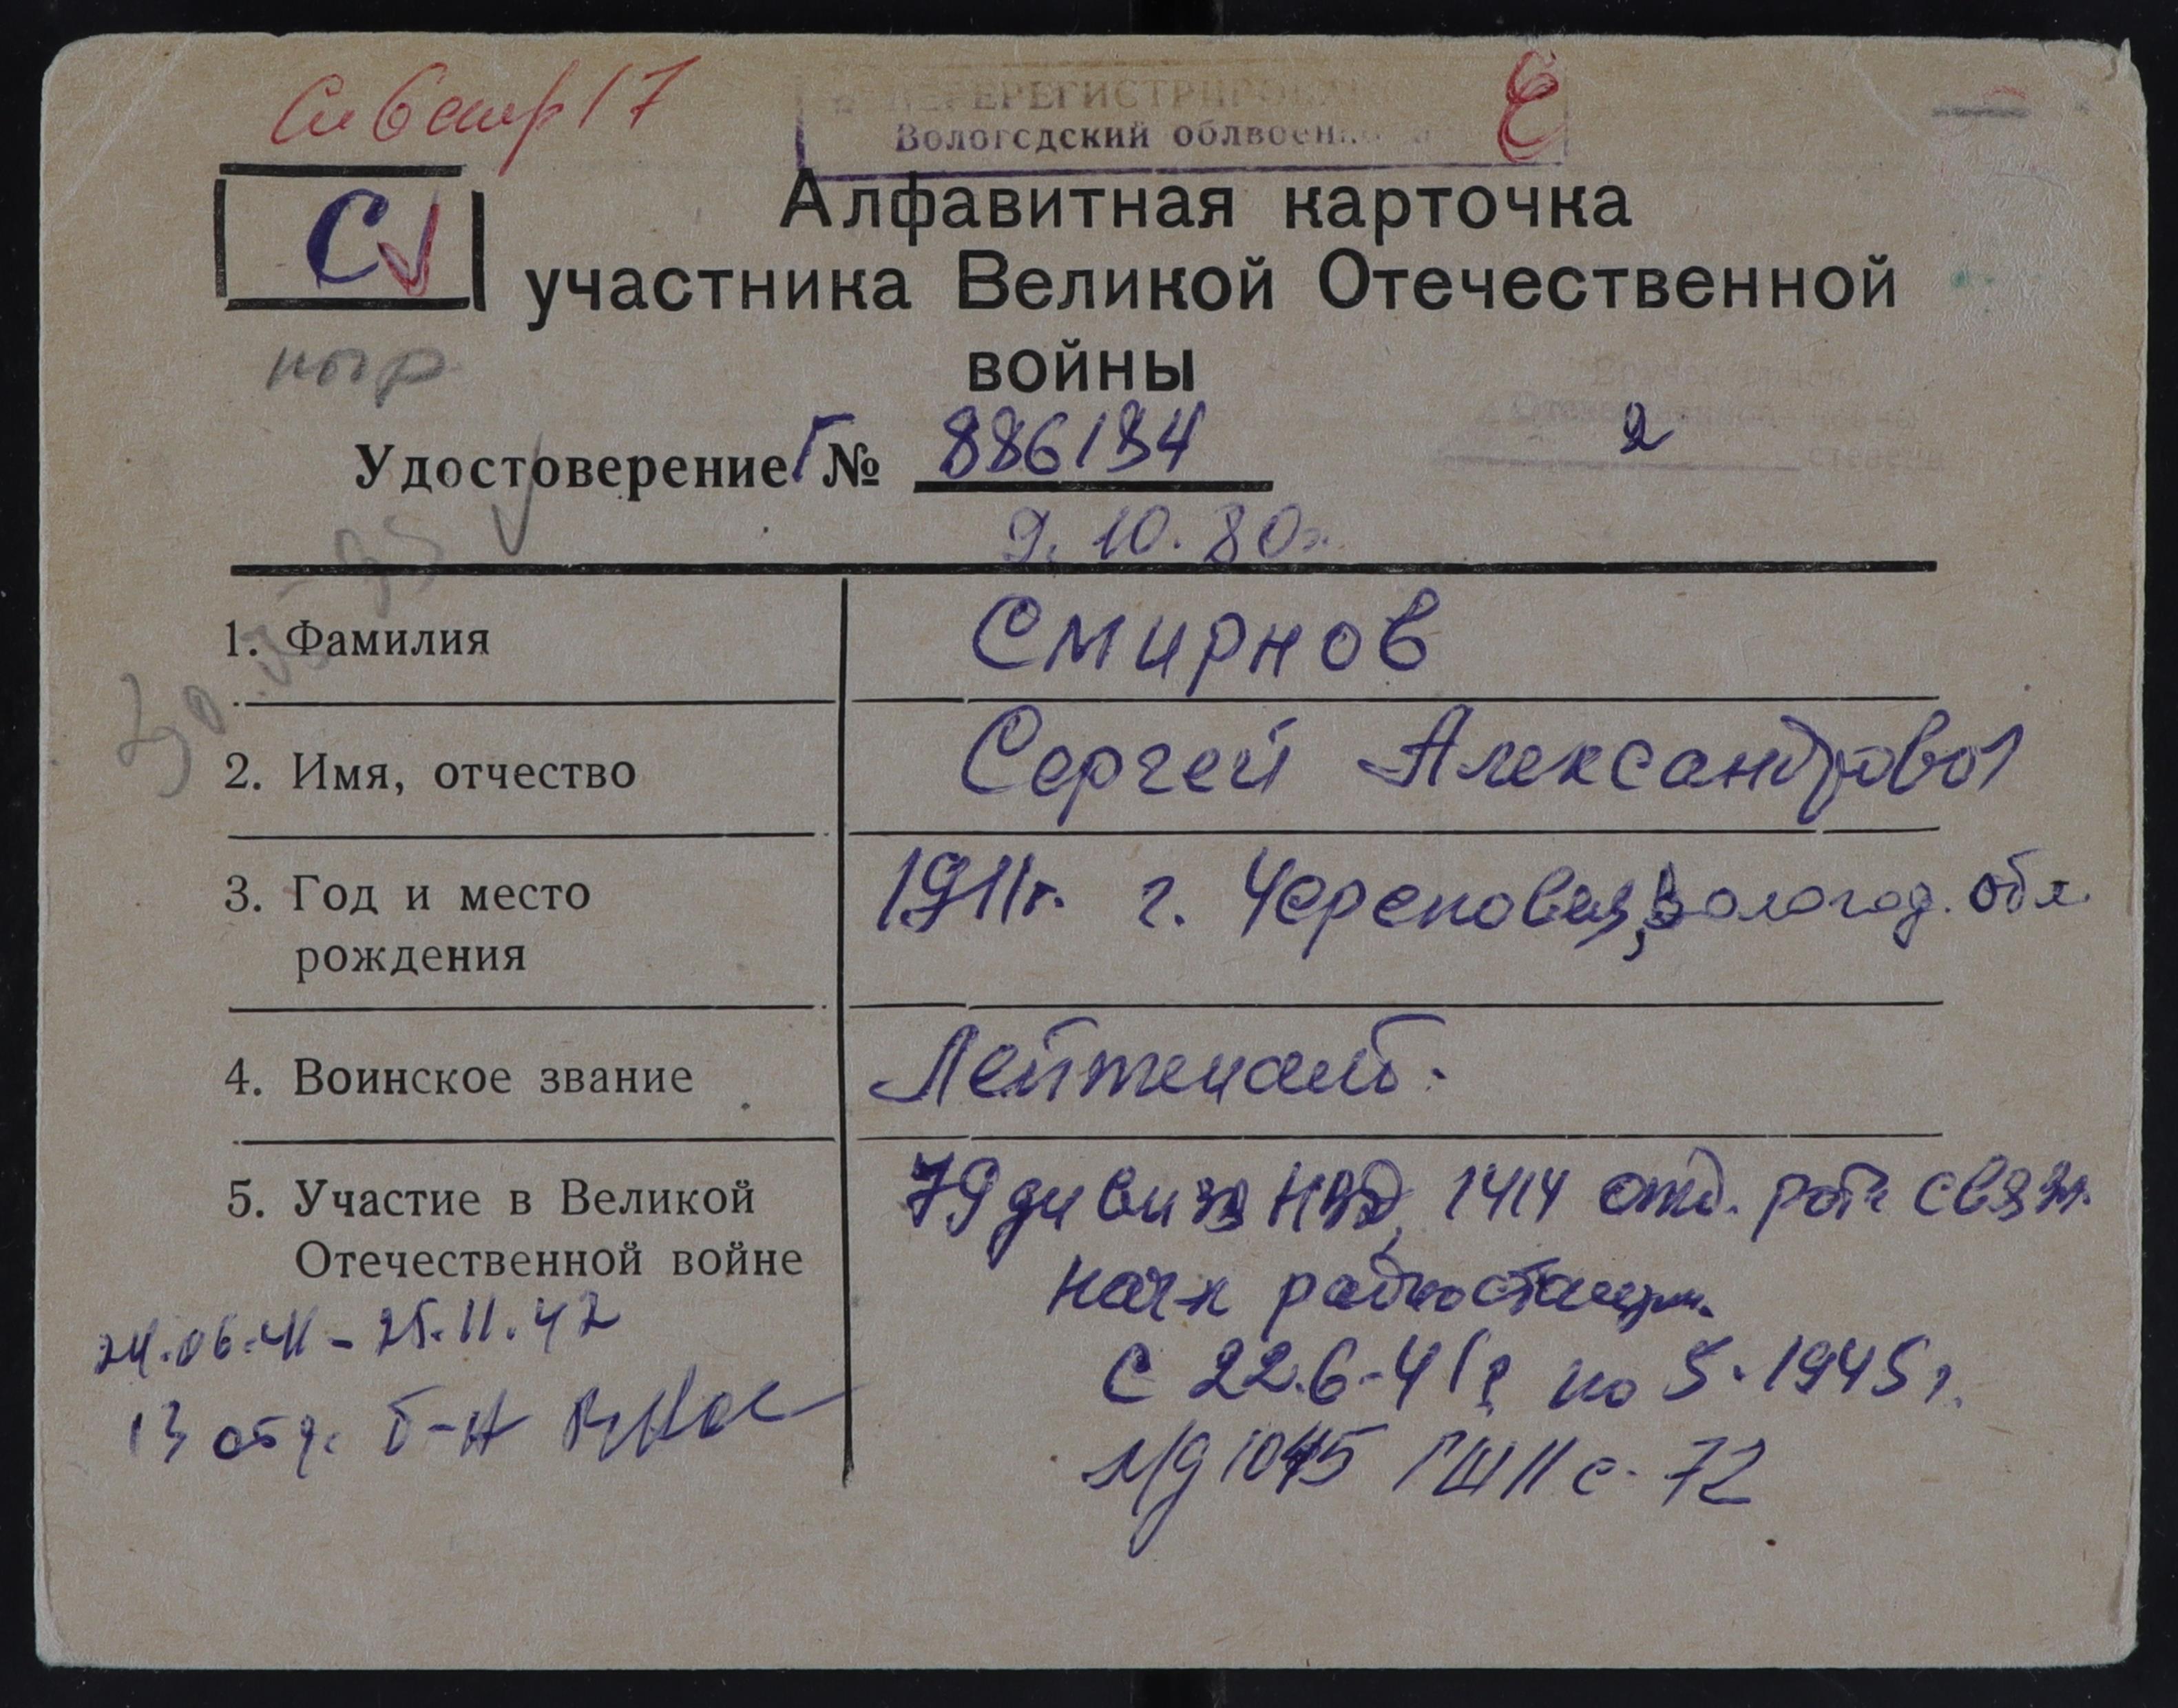 См 6 стр 17
ПЕРЕРЕГИСТРИРОВАН
Вологодский облвоен
С
Алфавитная карточка
участника Великой Отечественной
войны
Удостоверение Г № 886134
2
степени
9.10.80г.
1. Фамилия Смирнов
2. Имя, отчество Сергей Александров
3. Год и место 1911г. г. Череповец, Вологод. обл.
рождения
4. Воинское звание Лейтенант.
5. Участие в Великой 79 дивиз 1414 отд. рота связи
Отечественной войне нач-к радиостанции
24.06.41 - 25.11.42 С 22.6-41г по 5.1945г.
13 отд. б-н ВНОС МД 1045 ГШ 11 с. 72